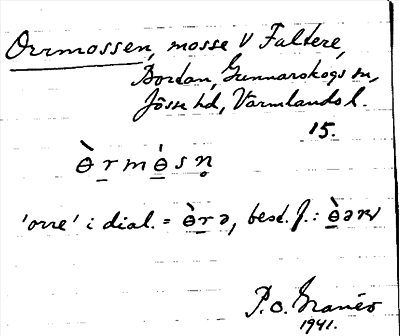 Orrmossen, mosse V Faltere,
Bordan, Gunnarskogs sn,
Jösse hd, Värmlands l.
15.
ɵ̠̀rmɵ̠̀sn̥
'orre' i dial. = ɵ̠̀r̠ə, best. f.:
P.O. Granér
1941.